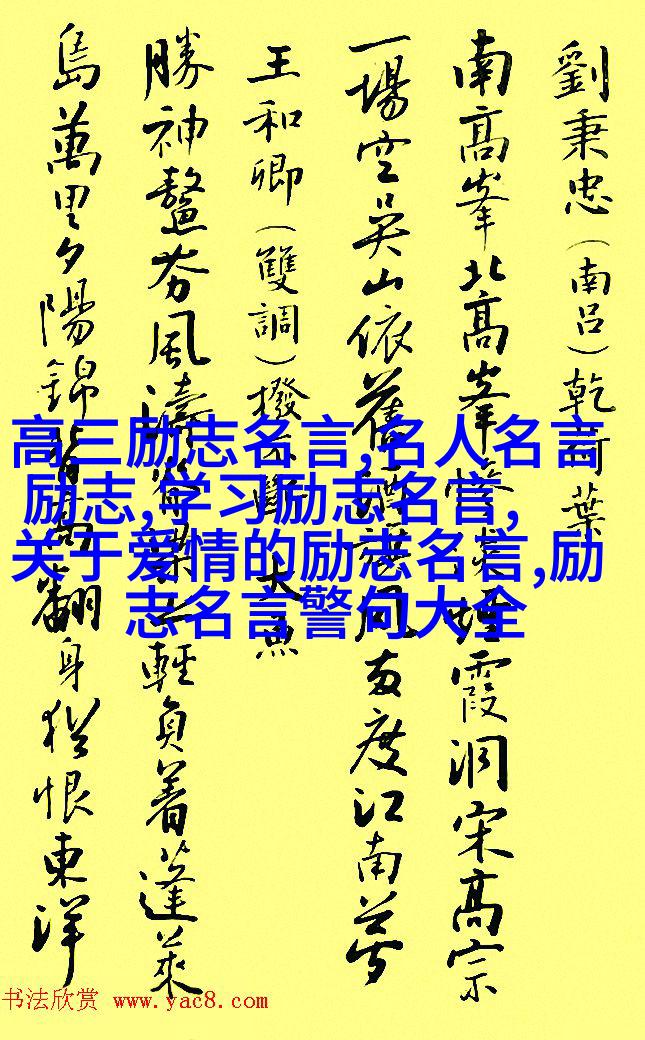 劉秉忠(南吕)乾荷葉
南高峯北高峯惨煙霞洞宋高宗
一場空吴山依舊風两度江南夢
王和卿(雙調)撥不斷 大魚
勝神鰲夯風濤輕負着蓬萊
島萬里夕陽錦背翻身猶恨東洋
高三励志名言,名人名言
励志,学习励志名言,
关于爱情的励志名言,励
志名言警句大全
书法欣赏 www.yac8.com